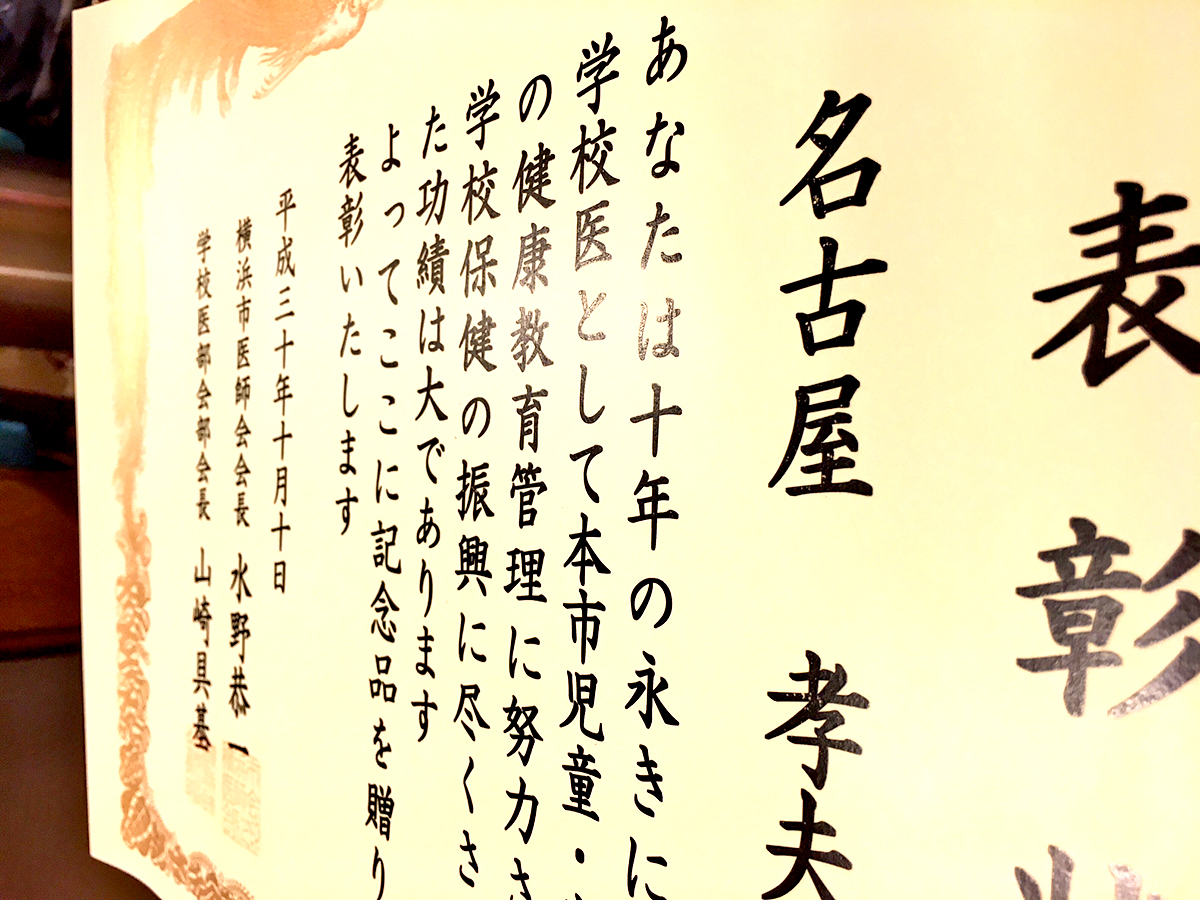 表彰状
名古屋 孝夫
あなたは十年の永きに
学校医として本市児童・
の健康教育管理に努力さ
学校保健の振興に尽くさ
た功績は大であります
よってここに記念品を贈り
表彰いたします
平成三十年十月十日
横浜市医師会会長 水野恭一
学校医部会部会長 山崎具基